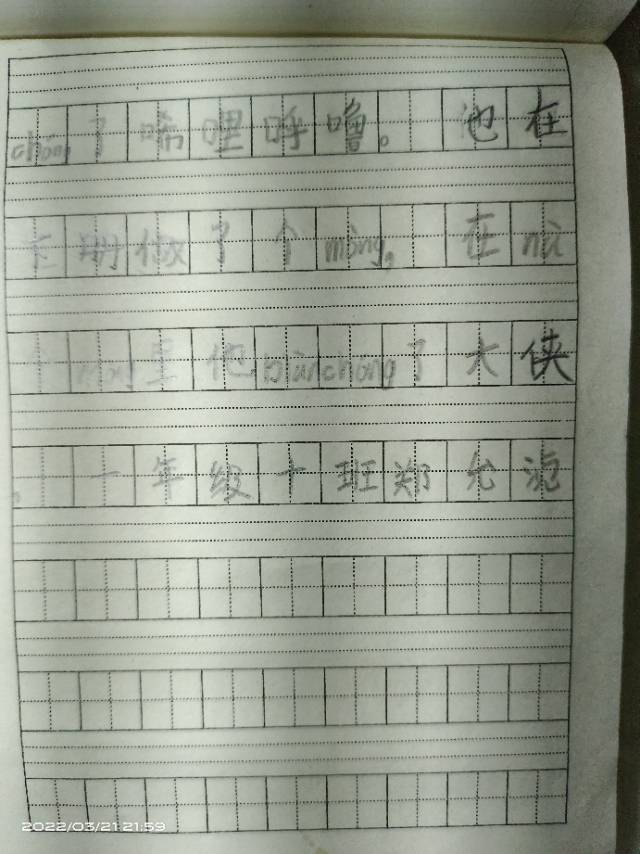 chéng了唏哩呼噜。他在
上珊做了个mèng,在nà
个mèng里他biànchéng了大侠
。一年级十班郑允
2022/03/21 21:59